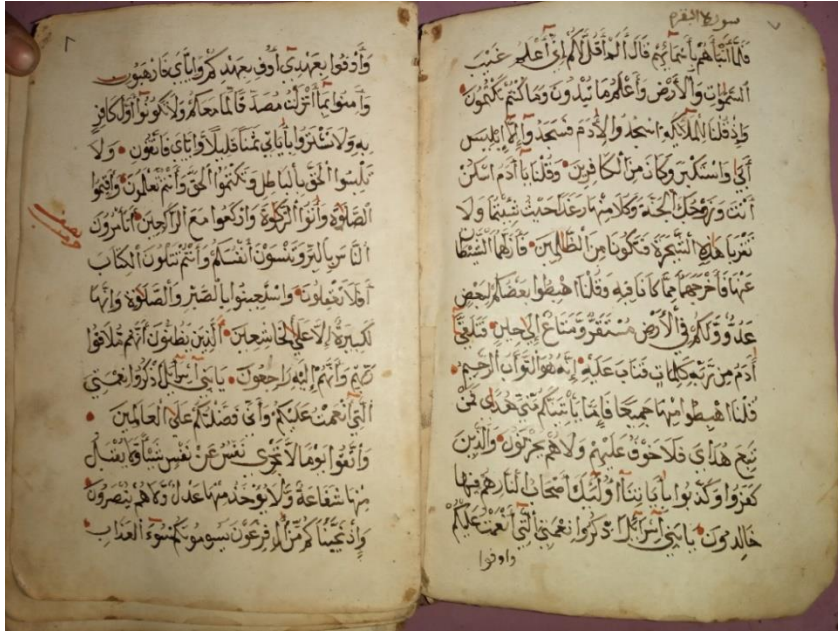 سورة البقرة
٧
فلما أنبأهم بأسمائهم قال ألم أقل لكم إني أعلم غيب
السموات والأرض وأعلم ما تبدون وما كنتم تكتمون
وإذ قلنا للملائكة اسجدوا لأدم فسجدوا إلا إبليس
أبى واستكبر وكان من الكافرين وقلنا يا آدم اسكن
أنت وزوجك الجنة وكلا منها رغدا حيث شئتما ولا
تقربا هذه الشجرة فتكونا من الظالمين فأزلهما الشيطان
عنها فأخرجهما مما كانا فيه وقلنا اهبطوا بعضكم لبعض
عدو ولكم في الأرض مستقر ومتاع إلى حين فتلقى
آدم من ربه كلمات فتاب عليه إنه هو التواب الرحيم
قلنا اهبطوا منها جميعا فإما يأتينكم مني هدى فمن
تبع هداي فلا خوف عليهم ولا هم يحزنون والذين
كفروا وكذبوا بآياتنا أولئك أصحاب النار هم فيها
خالدون يا بني اسرائيل اذكروا نعمتي التي أنعمت عليكم
واوفوا
وأوفوا بعهدي أوف بعهدكم وإياي فارهبون
وآمنوا بما أنزلت مصدقا لما معكم ولا تكونوا أول كافر
به ولا تشتروا بآياتي ثمنا قليلا وإياي فاتقون ولا
تلبسوا الحق بالباطل وتكتموا الحق وأنتم تعلمون وأقيموا
الصلوة وآتوا الزكوة واركعوا مع الراكعين أتأمرون
الناس بالبر وتنسون أنفسكم وأنتم تتلون الكتاب
أفلا تعقلون واستعينوا بالصبر والصلوة وإنها
لكبيرة إلا على الخاشعين الذين يظنون أنهم ملاقوا
ربهم وأنهم إليه راجعون يا بني اسرائيل اذكروا نعمتي
التي أنعمت عليكم وأني فضلتكم على العالمين
واتقوا يوما لا تجزي نفس عن نفس شيئا ولا يقبل
منها شفاعة ولا يؤخذ منها عدل ولا هم ينصرون
وإذ نجيناكم من آل فرعون يسومونكم سوء العذاب